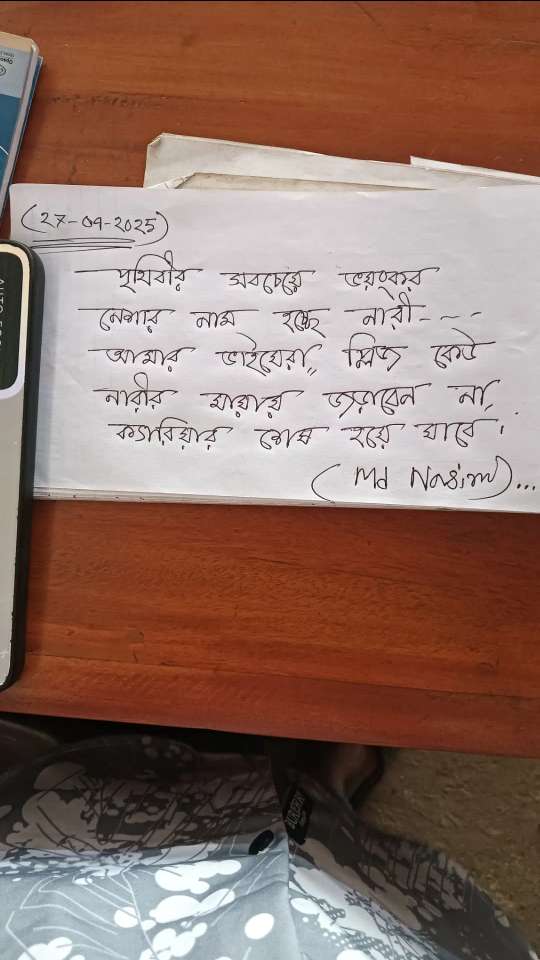 (27-09-2025)
পৃথিবীর সবচেয়ে ভয়ংকর
নেশার নাম হচ্ছে নারী----
আমার ভাইয়েরা,, প্লিজ কেউ
নারীর মায়ায় জড়াবেন না,
ক্যারিয়ার শেষ হয়ে যাবে।
(Md Nasim)...